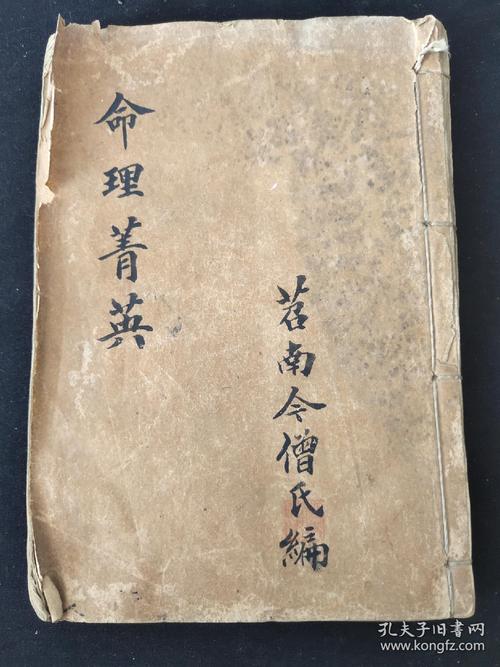 命理菁英
苕南今僧氏編
孔夫子旧书网
www.kongfz.com